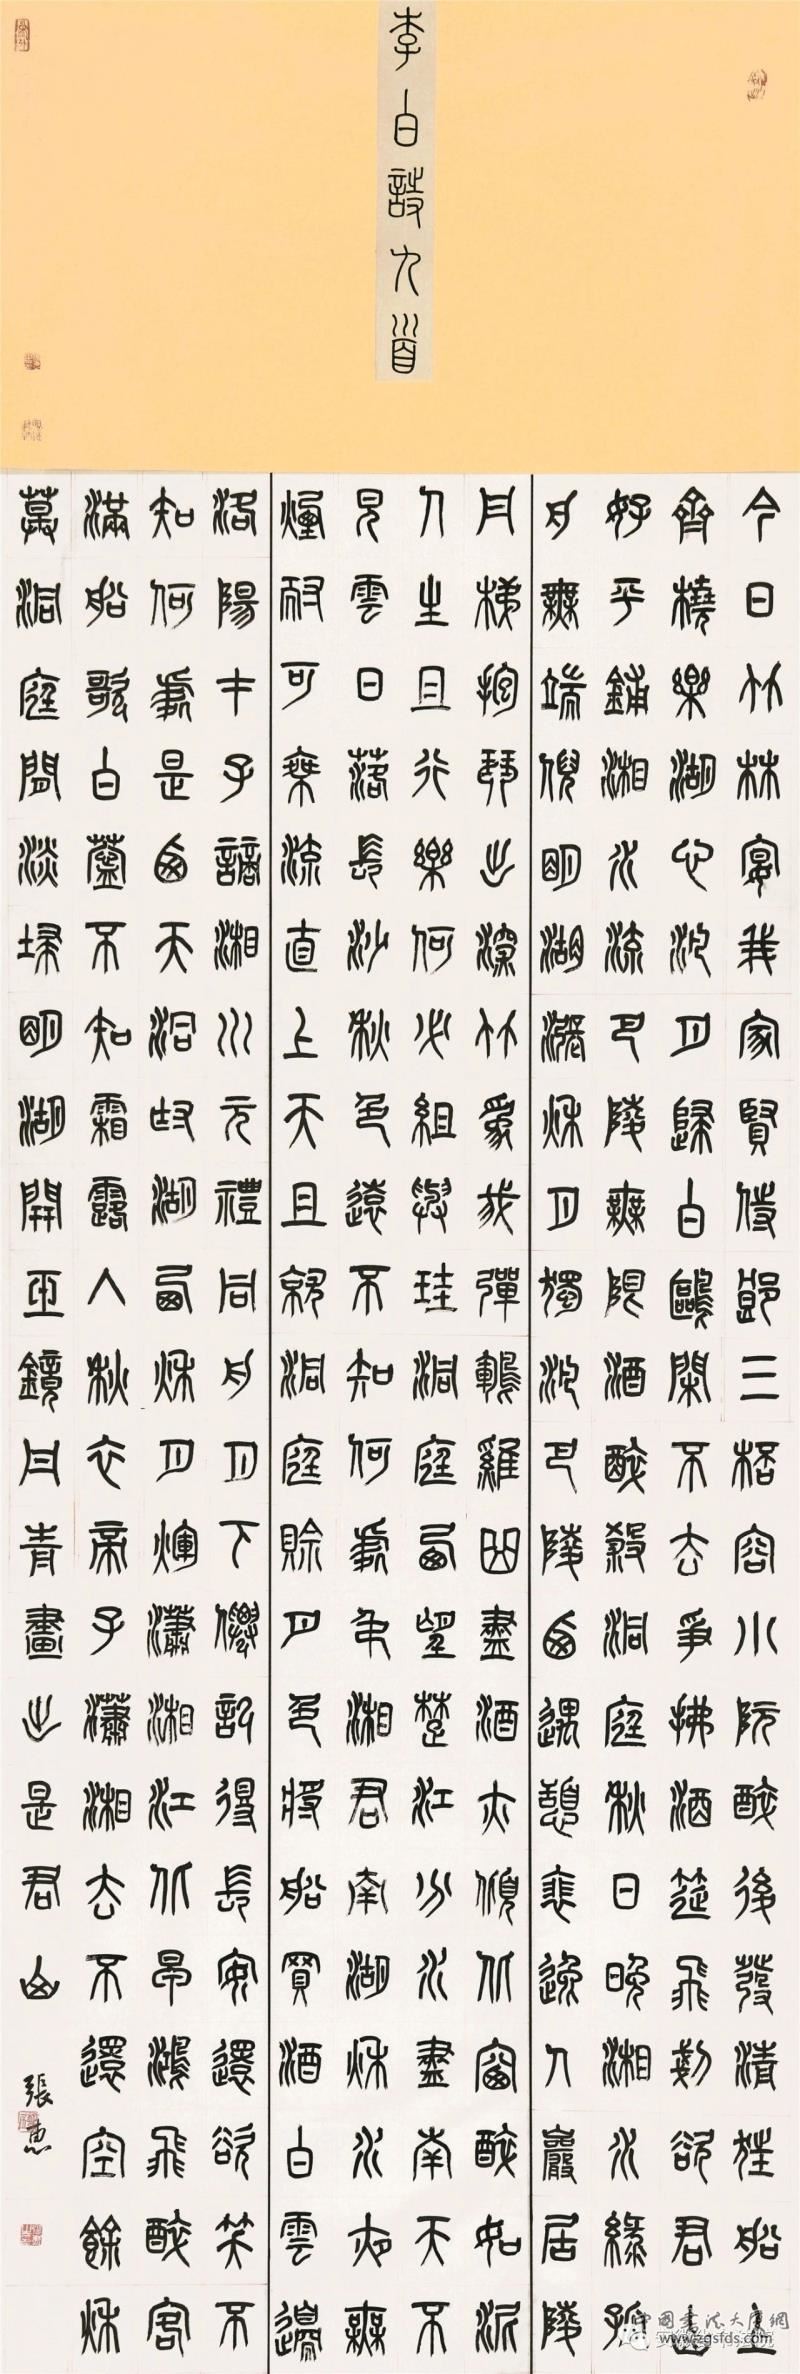 李白詩九首
今日竹林宴我家賢侍郎三桮容小阮醉後發清狂船上
齊橈樂湖心泛月歸白鷗閑不去爭拂酒筵飛剗卻君山
好平鋪湘水流巴陵無限酒醉殺洞庭秋日晚湘水綠孤
舟無端倪明湖漲秋月獨泛巴陵西遇憩裴逸人巖居陵
丹梯抱琴出深竹為我彈鵾雞曲盡酒亦傾北窗醉如泥
人生且行樂何必組與珪洞庭西望楚江分水盡南天不
見雲日落長沙秋色遠不知何處弔湘君南湖秋水夜無
煙耐可乘流直上天且就洞庭賒月色將船買酒白雲邊
洛陽才子謫湘川元禮同舟月下僊記得長安還欲笑不
知何處是西天湖西秋月輝瀟湘江北早鴻飛醉客
滿船歌白薴不知霜露入秋衣帝子瀟湘去不還空餘秋
草洞庭間淡掃明湖開玉鏡丹青畫出是君山
張惠
中國書法大廈網
www.zgsfds.com